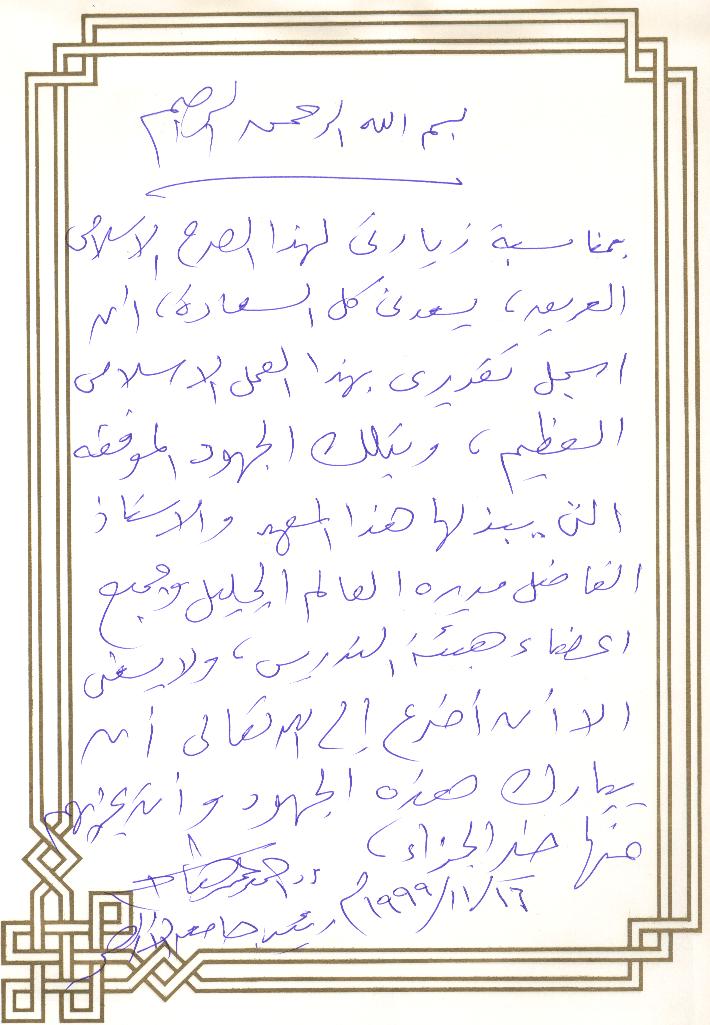 بسم الله الرحمن الرحيم
بمناسبة زيارتى لهذا الصرح الاسلامى
العريق، يسعدنى كل السعادة، أن
اسجل تقديرى بهذا العمل الاسلامى
العظيم، وبتلك الجهود الموفقه
التى يبذلها هذا المعهد والاستاذ
الفاضل مديره العالم الجليل وجميع
اعضاء هيئة التدريس، ولا يسعنى
الا أن أضرع إلى الله تعالى أن
يبارك هذه الجهود وأن يجزيهم
عنها خير الجزاء،
أ.د. احمد عمر هاشم
١٦/١١/١٩٩٩م رئيس جامعة الأزهر